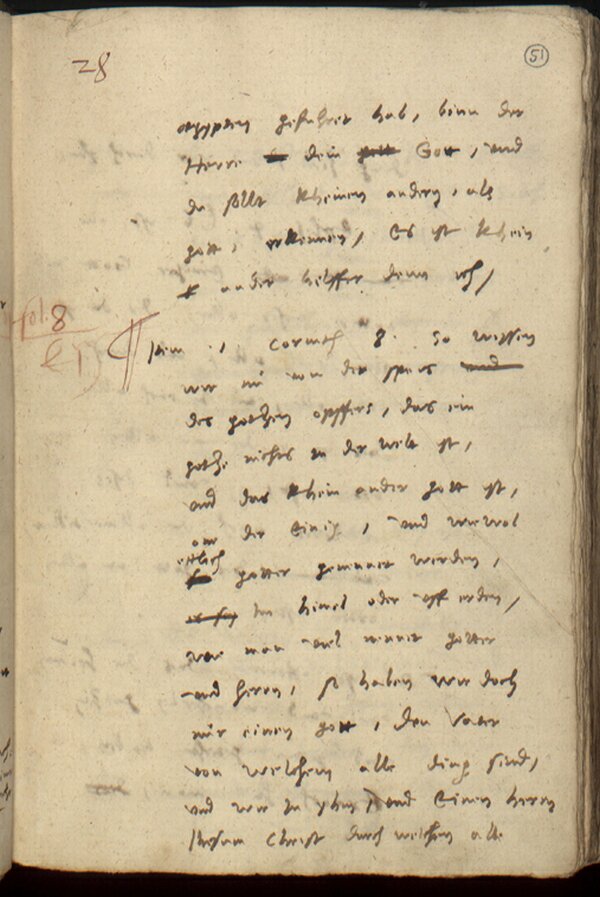 28
51
egypten gefuhret hab, binn der
Herre dein gott Gott, und
du sollt kheinen andern, als
gott, erkennen, Es ist khein
ander helffer denn ich,
fol. 8
Item 1 Corinth 8. So wissen
wir nu von der speis und
des gotzen opffers, das ein
gotze nichts in der welt ist,
und das khein ander gott ist,
on der Einig, und wiewol
ettlich
gotter genennet werden,
es sey Im himel oder uff erden,
wie man viel nennet gotter
und herrn, so haben wir doch
nur einen gott, den Vater
von welchem alle ding sind,
und wir In yhm, und Einen herrn
Jhesum Christ durch welchen alle